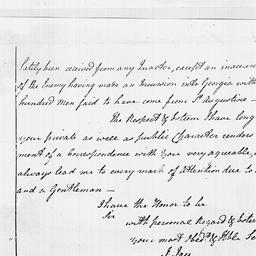 lately been received from any Quarter, except an inaccu
of the Enemy having made an Incursion into Georgia with
hundred Men said to have come from St Augustine —
The Respect & Esteem I have long
your private as well as public Character renders
ment of a Correspondence with you very agreeable,
always lead me to every mark of Attention due to
and a Gentleman —
I have the Honor to be
Sir
with personal Regard & Esteem
your most Obedt. & Hble Se
J. Jay